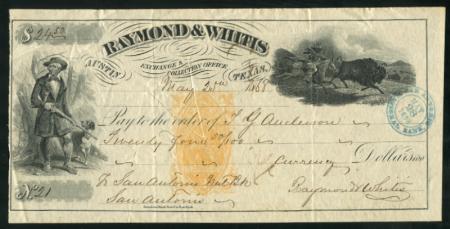 $24.50
RAYMOND & WHITIS
AUSTIN EXCHANGE & COLLECTION OFFICE, TEXAS,
May 20th 1868
Pay to the order of F G Anderson
Twenty four 50/100
Currency Dollars
No. 21
To San Antonio Nat Bk
San Antonio
Raymond & Whitis